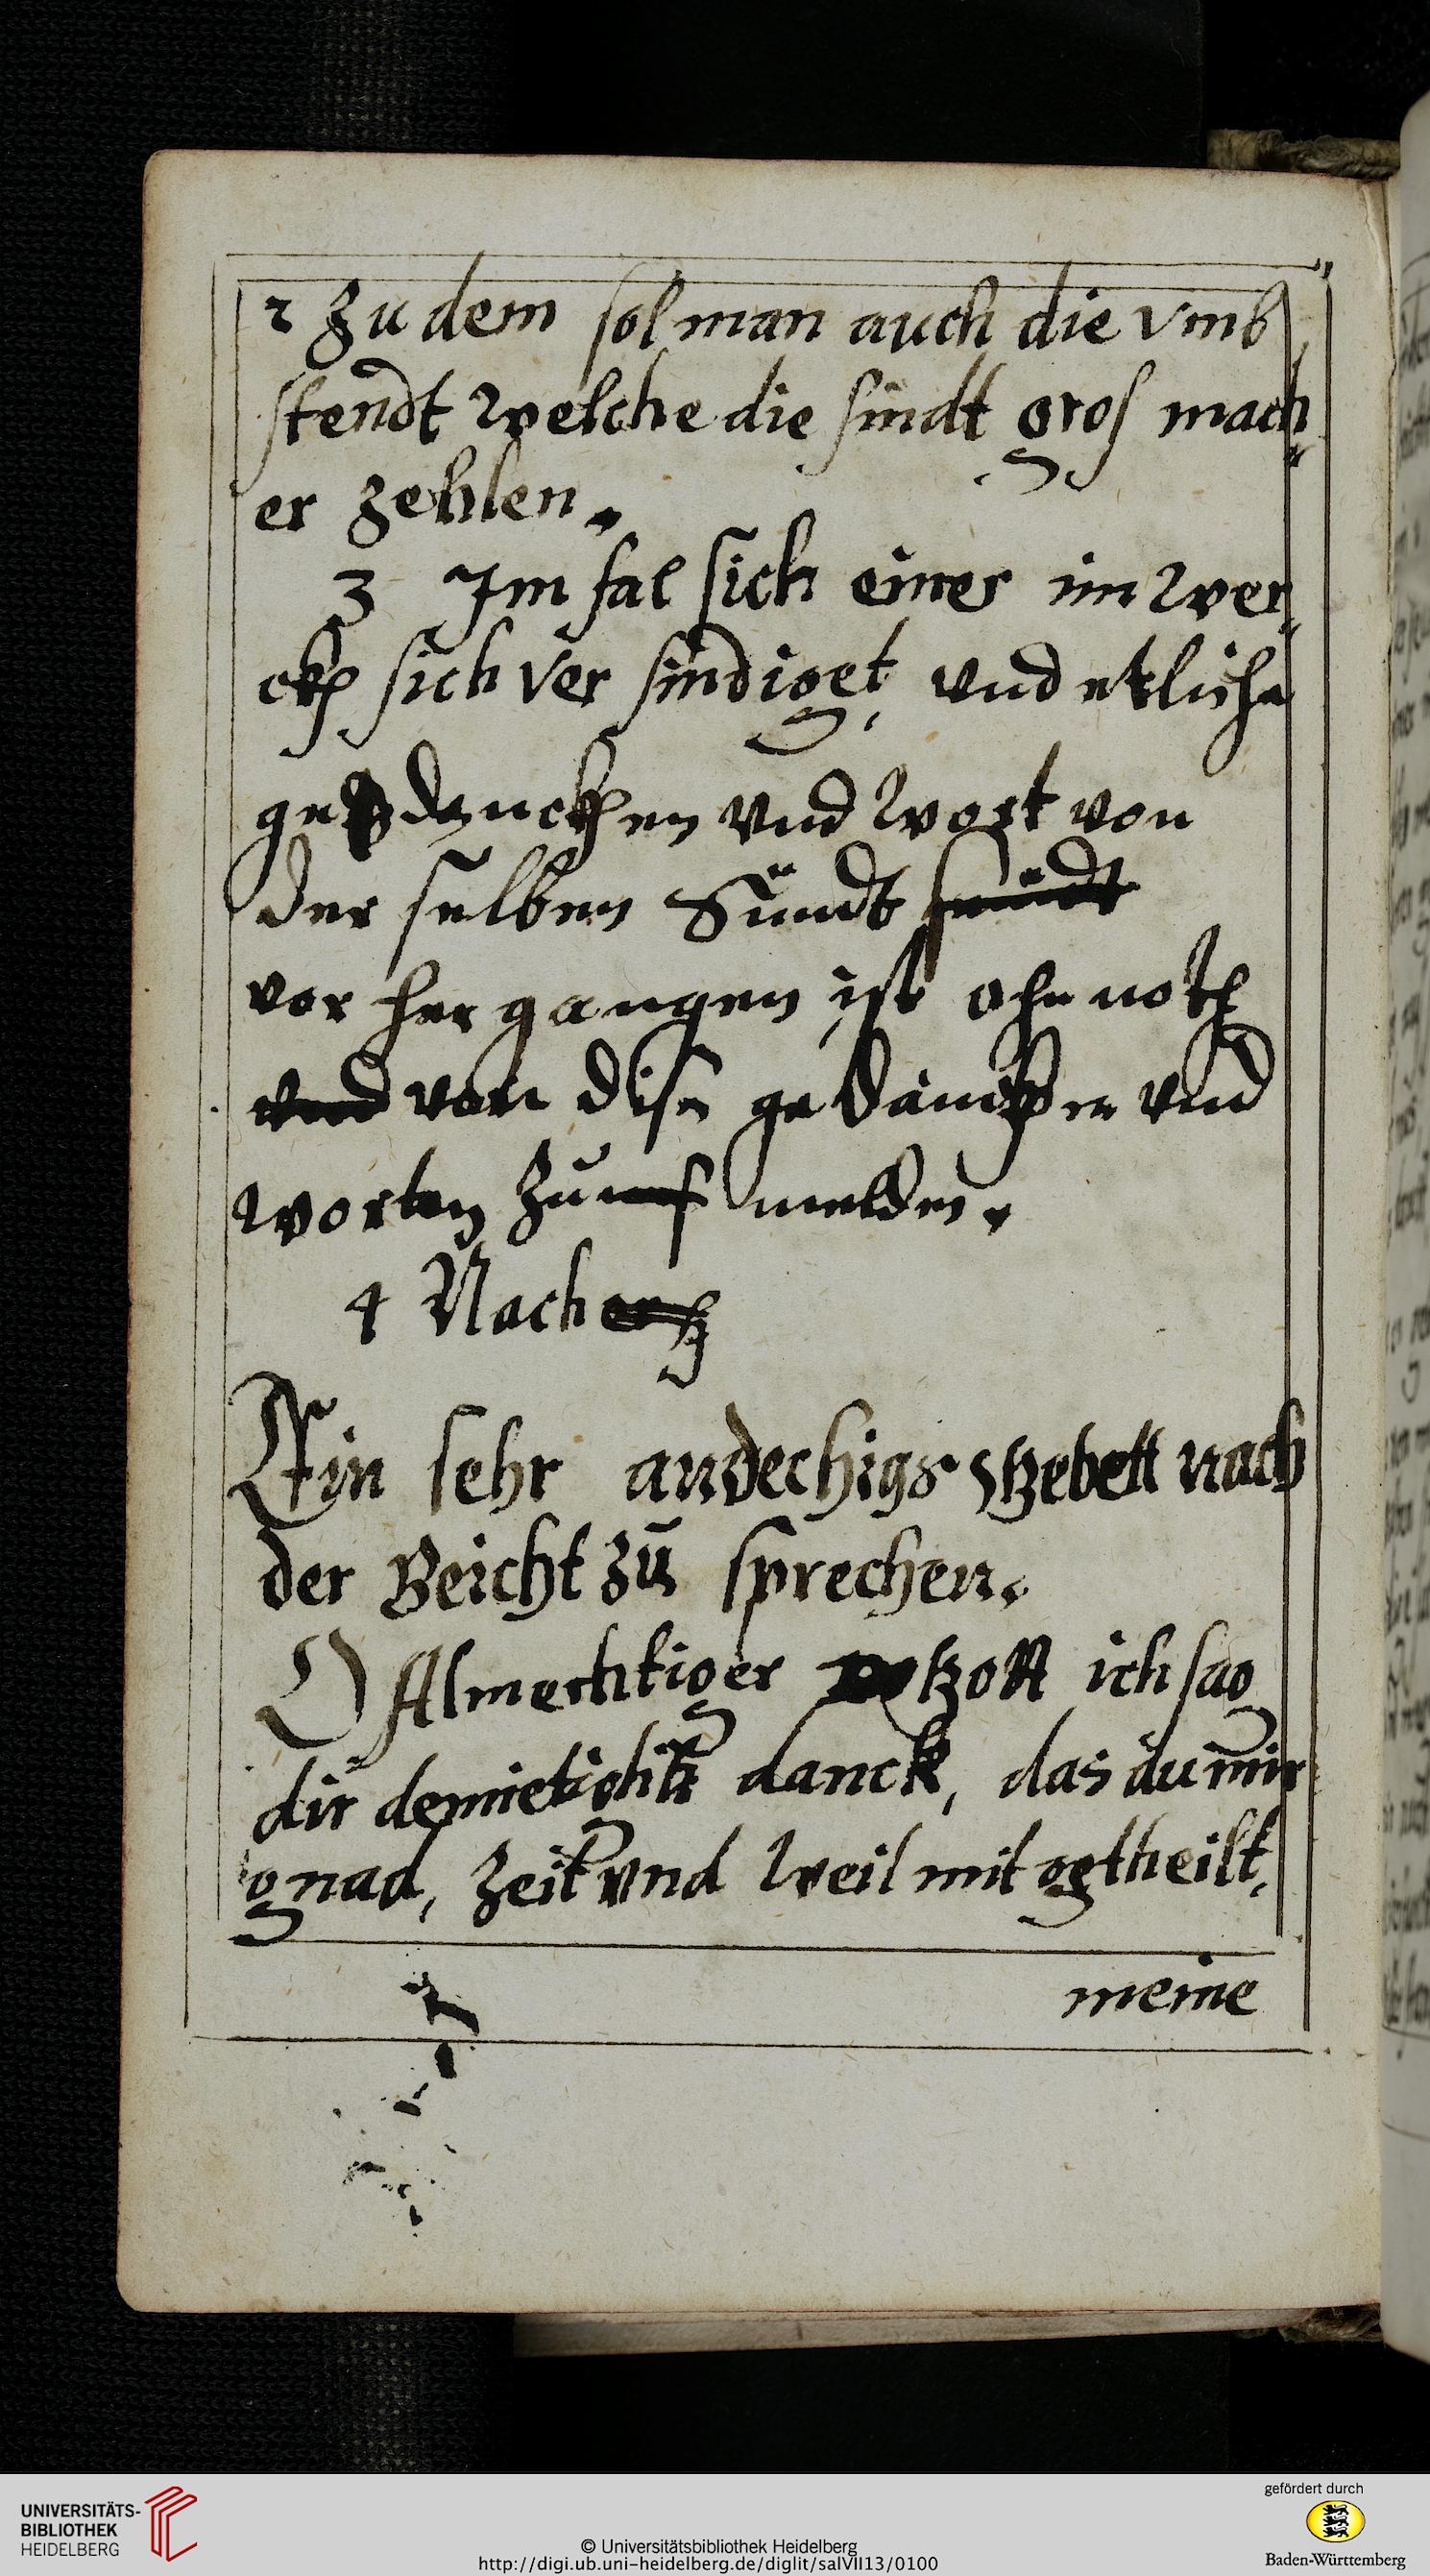 2 Zu dem sol man auch die vmb
stendt welche die sindt gros mach
er zehlen.
3 Im fal sich einer im wer
ckh sich ver sindiget, vnd etliche
gedanckhen vnd wort von
der selben Sündt
vor her gangen ist ohn noth
vnd von dise gedanckhen vnd
worten zu melden.
4 Nach
Ein sehr andechigs Gebett nach
der Beicht zu sprechen.
O Almechtiger Gott ich sag
dir demietigkh danck, das du mir
gnad, Zeit vnd weil mit getheilt,
meine
UNIVERSITÄTS-
BIBLIOTHEK
HEIDELBERG
© Universitätsbibliothek Heidelberg
http://digi.ub.uni-heidelberg.de/diglit/salVII13/0100
gefördert durch
Baden-Württemberg